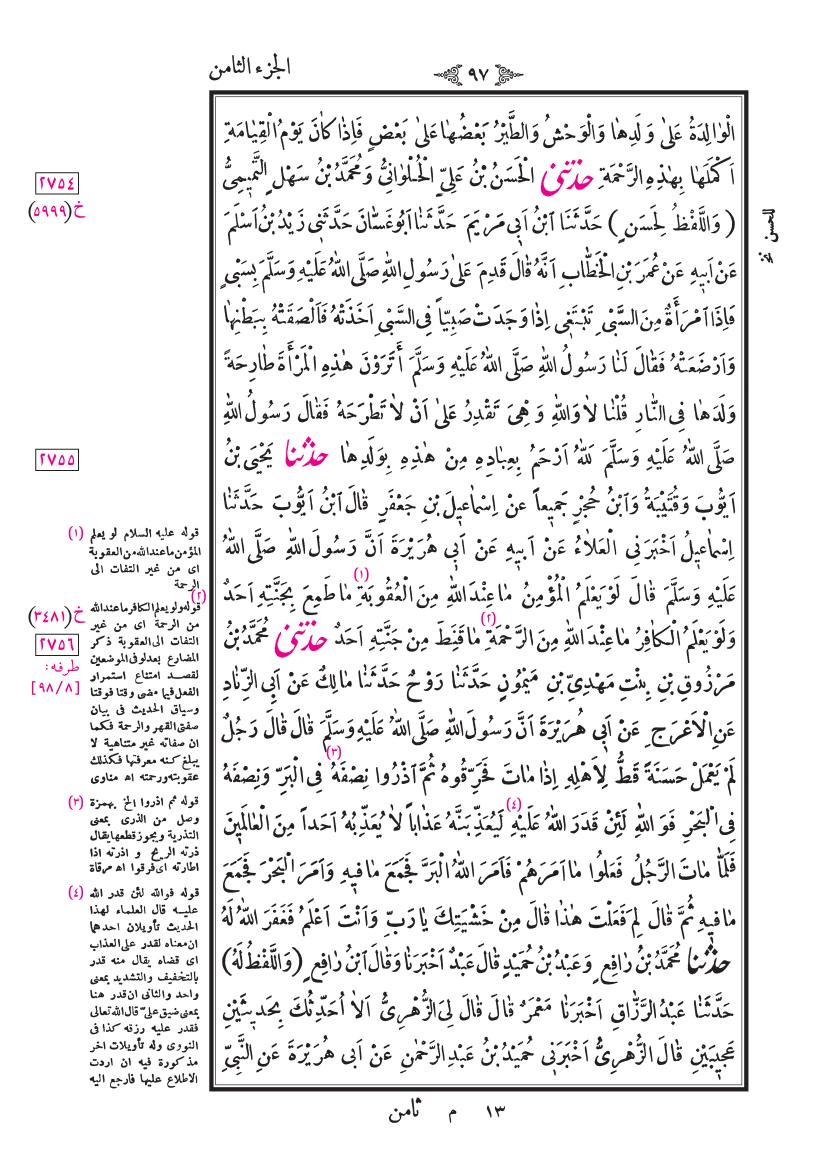 الجزء الثامن
٩٧
الْوَالِدَةُ عَلَىٰ وَلَدِهَا وَالْوَحْشُ وَالطَّيْرُ بَعْضُهَا عَلَىٰ بَعْضٍ فَإِذَا كَانَ يَوْمُ الْقِيَامَةِ
اَكْمَلَهَا بِهٰذِهِ الرَّحْمَةِ حَدَّثَنِي الْحَسَنُ بْنُ عَلِيٍّ الْحُلْوَانِيُّ وَمُحَمَّدُ بْنُ سَهْلٍ التَّمِيمِيُّ
(وَاللَّفْظُ لِحَسَنٍ) حَدَّثَنَا ابْنُ اَبِي مَرْيَمَ حَدَّثَنَا اَبُو غَسَّانَ حَدَّثَنِي زَيْدُ بْنُ اَسْلَمَ
عَنْ اَبِيهِ عَنْ عُمَرَ بْنِ الْخَطَّابِ اَنَّهُ قَالَ قَدِمَ عَلَىٰ رَسُولِ اللهِ صَلَّى اللهُ عَلَيْهِ وَسَلَّمَ بِسَبْيٍ
فَإِذَا امْرَأَةٌ مِنَ السَّبْيِ تَبْتَغِي اِذَا وَجَدَتْ صَبِيّاً فِي السَّبْيِ اَخَذَتْهُ فَاَلْصَقَتْهُ بِبَطْنِهَا
وَاَرْضَعَتْهُ فَقَالَ لَنَا رَسُولُ اللهِ صَلَّى اللهُ عَلَيْهِ وَسَلَّمَ أَتَرَوْنَ هٰذِهِ الْمَرْأَةَ طَارِحَةً
وَلَدَهَا فِي النَّارِ قُلْنَا لَا وَاللهِ وَهِيَ تَقْدِرُ عَلَىٰ اَنْ لَا تَطْرَحَهُ فَقَالَ رَسُولُ اللهِ
صَلَّى اللهُ عَلَيْهِ وَسَلَّمَ لَلّٰهُ اَرْحَمُ بِعِبَادِهِ مِنْ هٰذِهِ بِوَلَدِهَا حَدَّثَنَا يَحْيَى بْنُ
اَيُّوبَ وَقُتَيْبَةُ وَابْنُ حُجْرٍ جَمِيعاً عَنْ اِسْمَاعِيلَ بْنِ جَعْفَرٍ قَالَ ابْنُ اَيُّوبَ حَدَّثَنَا
اِسْمَاعِيلُ اَخْبَرَنِي الْعَلَاءُ عَنْ اَبِيهِ عَنْ اَبِي هُرَيْرَةَ اَنَّ رَسُولَ اللهِ صَلَّى اللهُ
عَلَيْهِ وَسَلَّمَ قَالَ لَوْ يَعْلَمُ الْمُؤْمِنُ مَا عِنْدَ اللهِ مِنَ الْعُقُوبَةِ (١) مَا طَمِعَ بِجَنَّتِهِ اَحَدٌ
وَلَوْ يَعْلَمُ الْكَافِرُ مَا عِنْدَ اللهِ مِنَ الرَّحْمَةِ (٢) مَا قَنِطَ مِنْ جَنَّتِهِ اَحَدٌ حَدَّثَنِي مُحَمَّدُ بْنُ
مَرْزُوقِ بْنِ بِنْتِ مَهْدِيِّ بْنِ مَيْمُونٍ حَدَّثَنَا رَوْحٌ حَدَّثَنَا مَالِكٌ عَنْ اَبِي الزِّنَادِ
عَنِ الْاَعْرَجِ عَنْ اَبِي هُرَيْرَةَ اَنَّ رَسُولَ اللهِ صَلَّى اللهُ عَلَيْهِ وَسَلَّمَ قَالَ قَالَ رَجُلٌ
لَمْ يَعْمَلْ حَسَنَةً قَطُّ لِاَهْلِهِ اِذَا مَاتَ فَحَرِّقُوهُ ثُمَّ اذْرُوا نِصْفَهُ (٣) فِي الْبَرِّ وَنِصْفَهُ
فِي الْبَحْرِ فَوَاللهِ لَئِنْ قَدَرَ اللهُ عَلَيْهِ (٤) لَيُعَذِّبَنَّهُ عَذَاباً لَا يُعَذِّبُهُ اَحَداً مِنَ الْعَالَمِينَ
فَلَمَّا مَاتَ الرَّجُلُ فَعَلُوا مَا اَمَرَهُمْ فَاَمَرَ اللهُ الْبَرَّ فَجَمَعَ مَا فِيهِ وَاَمَرَ الْبَحْرَ فَجَمَعَ
مَا فِيهِ ثُمَّ قَالَ لِمَ فَعَلْتَ هٰذَا قَالَ مِنْ خَشْيَتِكَ يَا رَبِّ وَاَنْتَ اَعْلَمُ فَغَفَرَ اللهُ لَهُ
حَدَّثَنَا مُحَمَّدُ بْنُ رَافِعٍ وَعَبْدُ بْنُ حُمَيْدٍ قَالَ عَبْدٌ اَخْبَرَنَا وَقَالَ ابْنُ رَافِعٍ (وَاللَّفْظُ لَهُ)
حَدَّثَنَا عَبْدُ الرَّزَّاقِ اَخْبَرَنَا مَعْمَرٌ قَالَ قَالَ لِيَ الزُّهْرِيُّ اَلَا اُحَدِّثُكَ بِحَدِيثَيْنِ
عَجِيبَيْنِ قَالَ الزُّهْرِيُّ اَخْبَرَنِي حُمَيْدُ بْنُ عَبْدِ الرَّحْمٰنِ عَنْ اَبِي هُرَيْرَةَ عَنِ النَّبِيِّ
للحسن نخ
٢٧٥٤
خ (٥٩٩٩)
٢٧٥٥
خ (٣٤٨١)
٢٧٥٦
طرفه:
[٩٨/٨]
(١) قوله عليه السلام لو يعلم
المؤمن ماعندالله من العقوبة
اى من غير التفات الى
الرحمة
(٢) قوله ولو يعلم الكافر ماعندالله
من الرحمة اى من غير
التفات الى العقوبة ذكر
المضارع بعدلو فى الموضعين
لقصد امتناع استمرار
الفعل فيما مضى وقتا فوقتا
وسياق الحديث فى بيان
صفتى القهر والرحمة فكما
ان صفاته غير متناهية لا
يبلغ كنه معرفتها فكذلك
عقوبته ورحمته اه مناوى
(٣) قوله ثم اذروا الخ بهمزة
وصل من الذرى بمعنى
التذرية ويجوز قطعها يقال
ذرته الريح و اذرته اذا
اطارته اى فرقوا اه مرقاة
(٤) قوله فوالله لئن قدر الله
عليه قال العلماء لهذا
الحديث تأويلان احدهما
ان معناه لقدر على العذاب
اى قضاه يقال منه قدر
بالتخفيف والتشديد بمعنى
واحد والثانى ان قدر هنا
بمعنى ضيق على قال الله تعالى
فقدر عليه رزقه كذا فى
النووى وله تأويلات اخر
مذكورة فيه ان اردت
الاطلاع عليها فارجع اليه
١٣ م ثامن